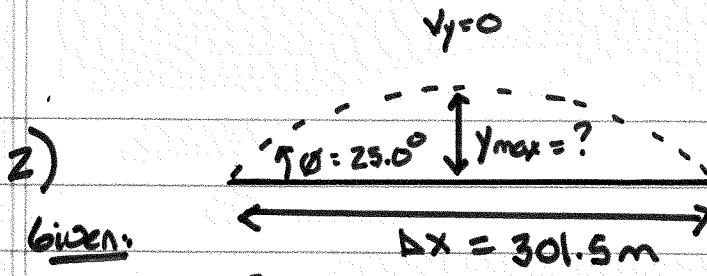 Vy=0
2)
Ø = 25.0°
Ymax = ?
Given:
ΔX = 301.5m